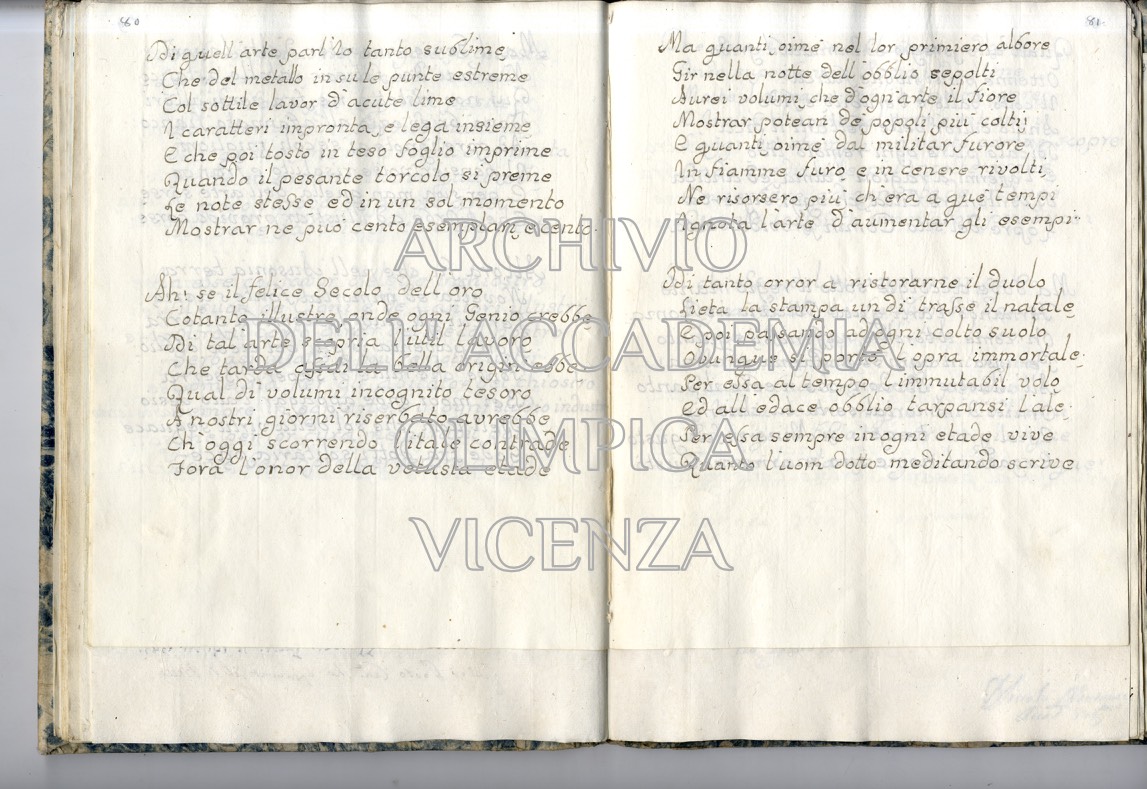 80
Di quell'arte parl'Io tanto sublime
Che del metallo in su le punte estreme
Col sottile lavor d'acute lime
I caratteri impronta, e lega insieme
E che poi tosto in teso foglio imprime
Quando il pesante torcolo si preme
Le note stesse ed in un sol momento
Mostrar ne può cento esemplari, e cento.
Ah! se il felice Secolo dell'oro
Cotanto illustre, onde ogni Genio crebbe
Di tal'arte scopria l'util lavoro
Che tarda assai la bella origin ebbe
Qual di volumi incognito tesoro
A nostri giorni riserbato avrebbe
Ch'oggi scorrendo l'itale contrade
Fora l'onor della vetusta etade
81
Ma quanti, oimè nel lor primiero albore
Gir nella notte dell'obblio sepolti
Aurei volumi, che d'ogn'arte il fiore
Mostrar potean de' popoli più colti,
E quanti, oimè dal militar furore
In fiamme furo, e in cenere rivolti,
Ne risorsero più ch'era a que' tempi
Ignota l'arte d'aumentar gli esempi.
Di tanto orror a ristorarne il duolo
Lieta la stampa un dì trasse il natale
E poi passando ad ogni colto suolo
Ovunque si portò l'opra immortale.
Per essa al tempo l'immutabil volo
Ed all'edace obblio tarpansi l'ale.
Per essa sempre in ogni etade vive
Quanto l'uom dotto meditando scrive
ARCHIVIO
DELL'ACCADEMIA
OLIMPICA
VICENZA